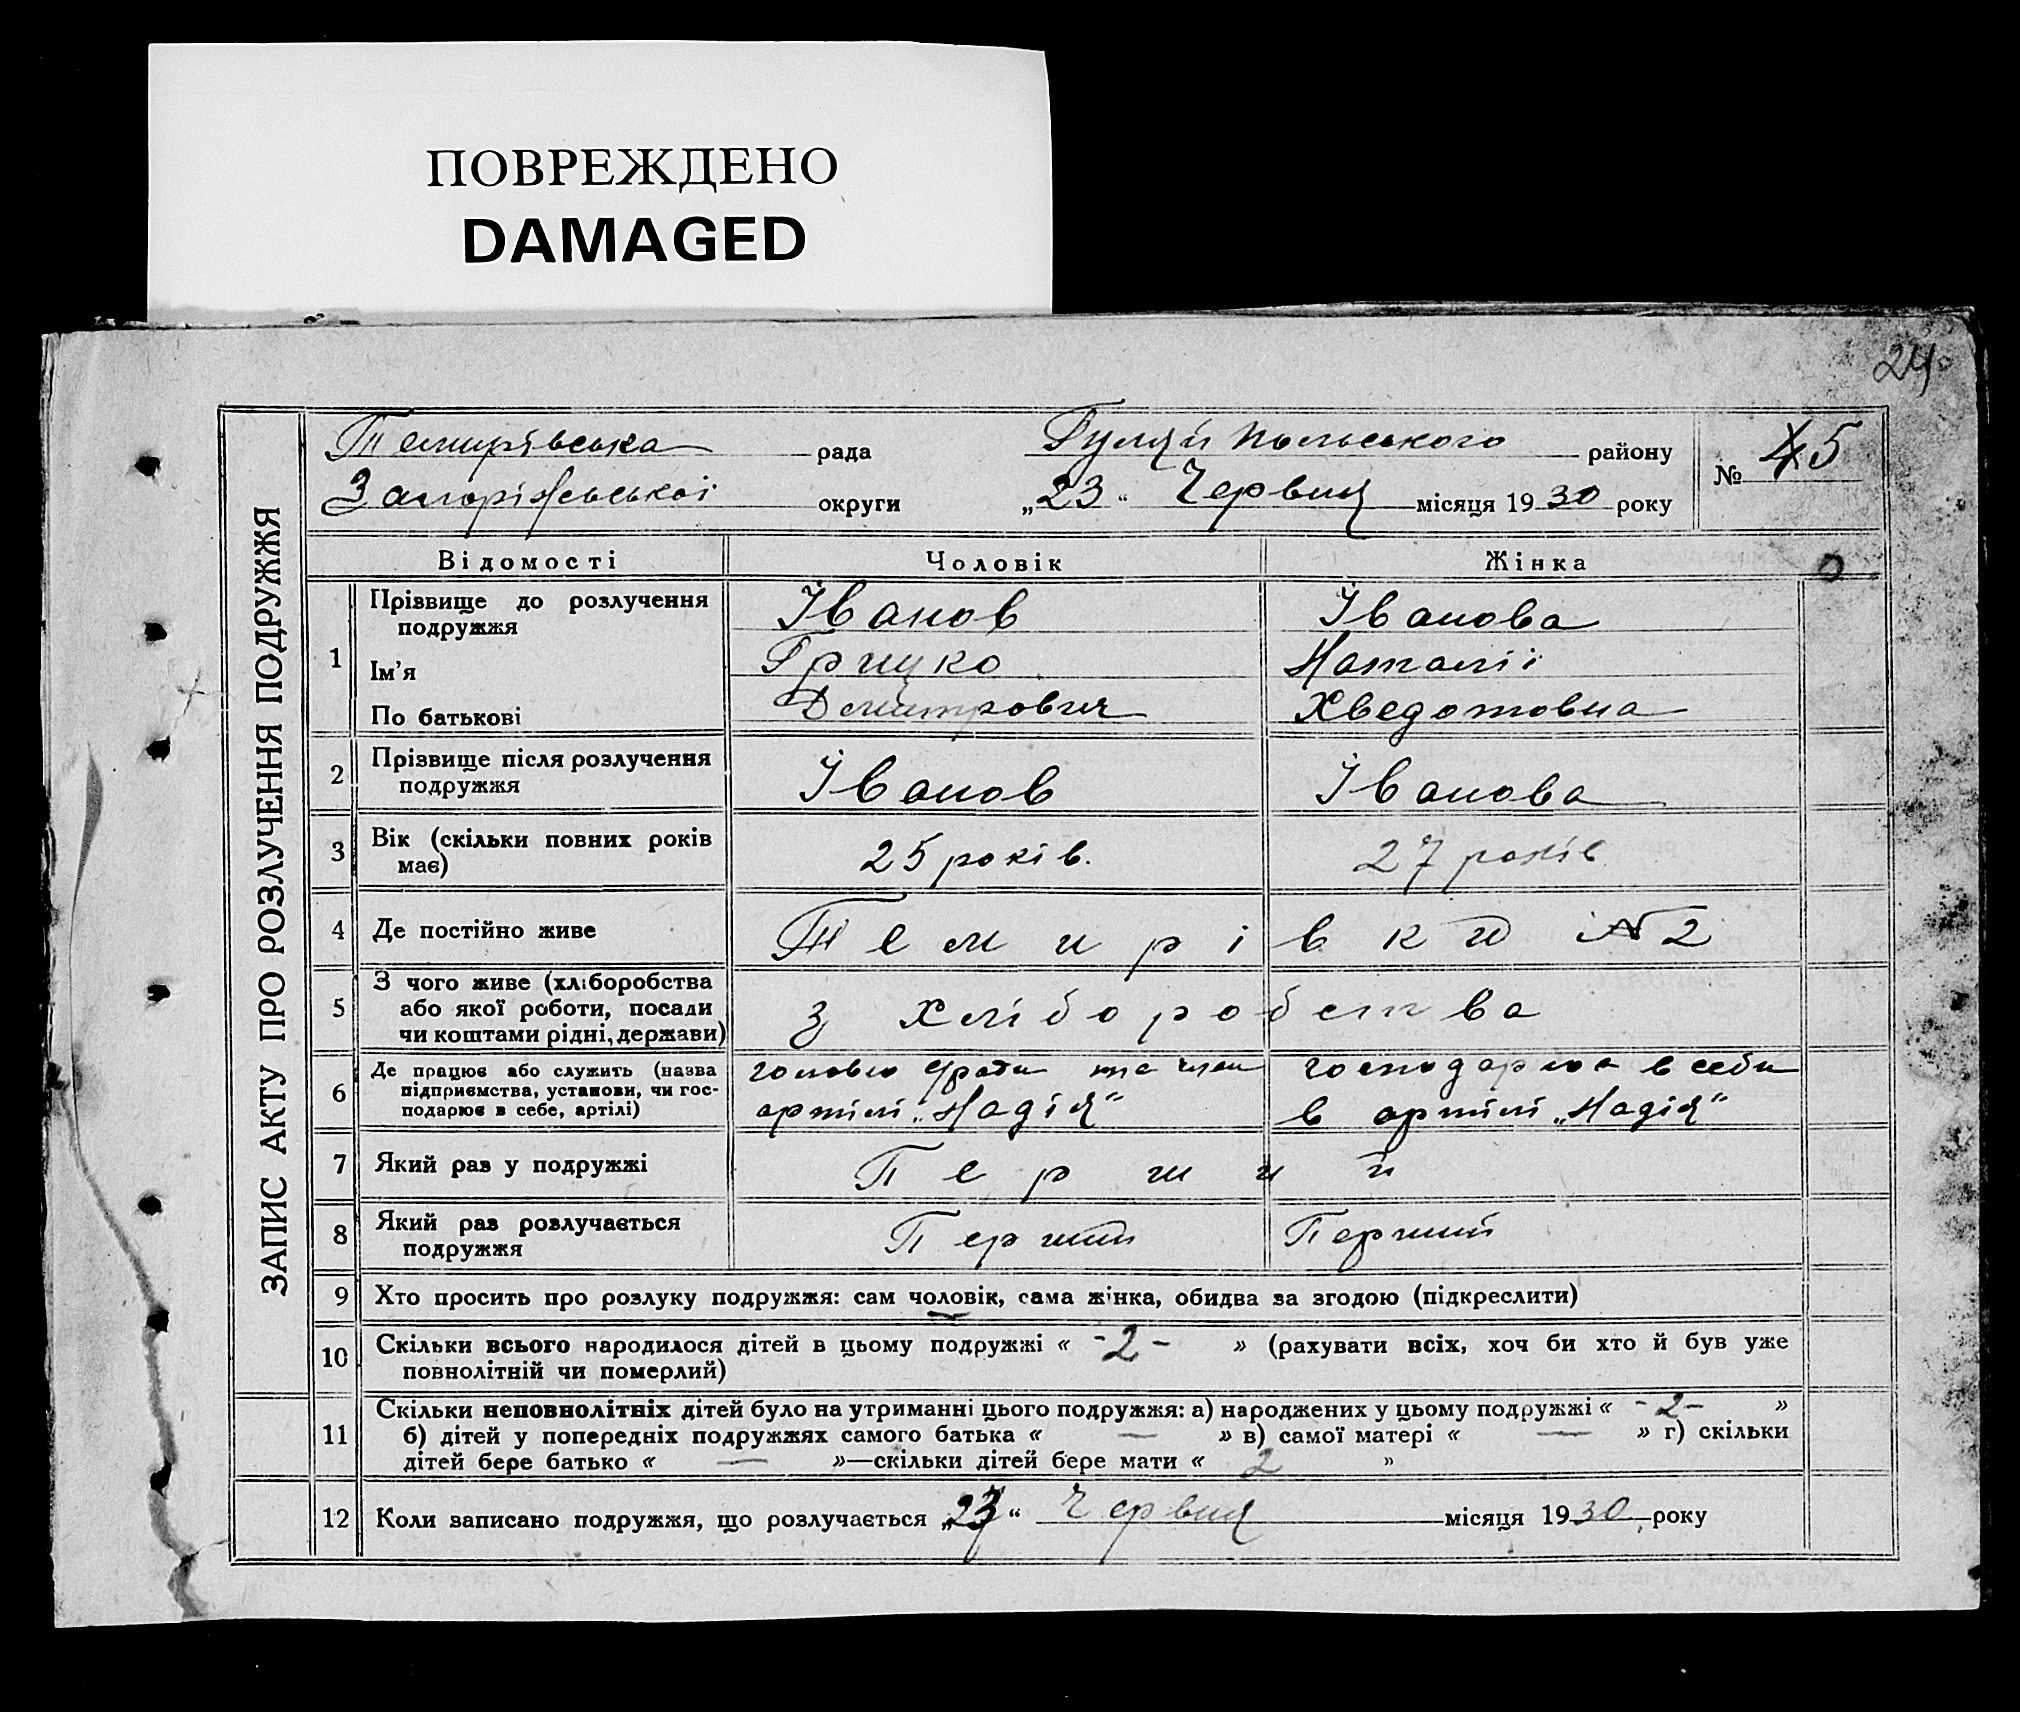 ПОВРЕЖДЕНО
DAMAGED
240
ЗАПИС АКТУ ПРО РОЗЛУЧЕННЯ ПОДРУЖЖЯ
Темирівська рада Гуляй Польського району № 45
Запоріжської округи „23“ Червня місяця 1930 року
Відомості Чоловік Жінка
1 Прізвище до розлучення подружжя Іванов Іванова
Ім'я Грицко Наталії
По батькові Дмитрович Хведотовна
2 Прізвище після розлучення
подружжя Іванов Іванова
3 Вік (скільки повних років
має) 25 років. 27 років
4 Де постійно живе Темирівка №2
5 З чого живе (хліборобства
або якої роботи, посади
чи коштами рідні, держави) з хліборобства
6 Де працює або служить (назва
підприємства, установи, чи гос-
подарює в себе, артілі) голова та член господарює в себе
артілі „Надія“ в артілі „Надія“
7 Який раз у подружжі Перший
8 Який раз розлучається
подружжя Перший Перший
9 Хто просить про розлуку подружжя: сам чоловік, сама жінка, обидва за згодою (підкреслити)
10 Скільки всього народилося дітей в цьому подружжі « -2- » (рахувати всіх, хоч би хто й був уже
повнолітній чи померлий)
11 Скільки неповнолітніх дітей було на утриманні цього подружжя: а) народжених у цьому подружжі « -2- »
б) дітей у попередніх подружжях самого батька « — » в) самої матері « — » г) скільки
дітей бере батько « — »—скільки дітей бере мати « 2 »
12 Коли записано подружжя, що розлучається „23“ Червня місяця 1930 року